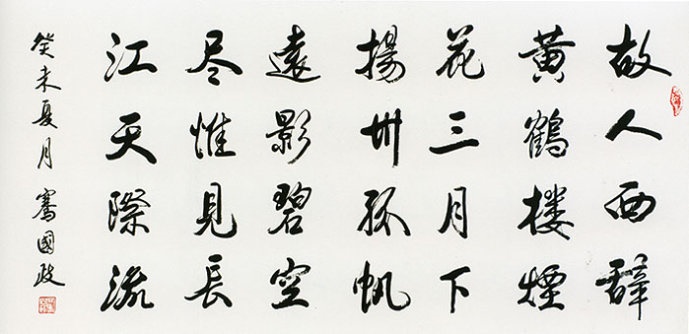 故人西辭
黄鶴楼煙
花三月下
揚州孤帆
遠影碧空
尽惟見長
江天際流
癸未夏月騫國政